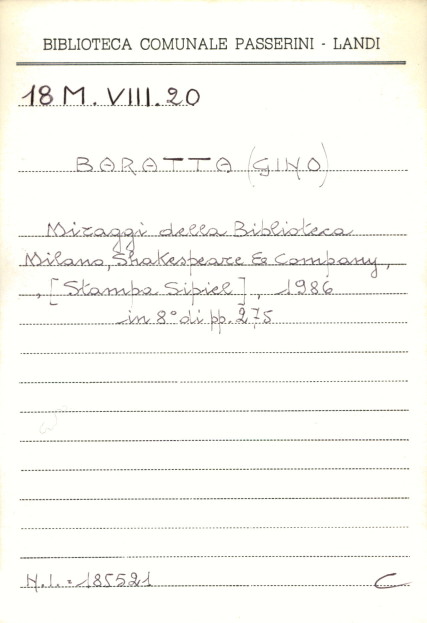 BIBLIOTECA COMUNALE PASSERINI - LANDI
18 M. VIII. 20
BARATTA (GINO)
Miraggi della Biblioteca
Milano, Shakespeare & Company,
, [Stampa Sipiel], 1986
in 8° di pp. 275
N.I. = 185521
C